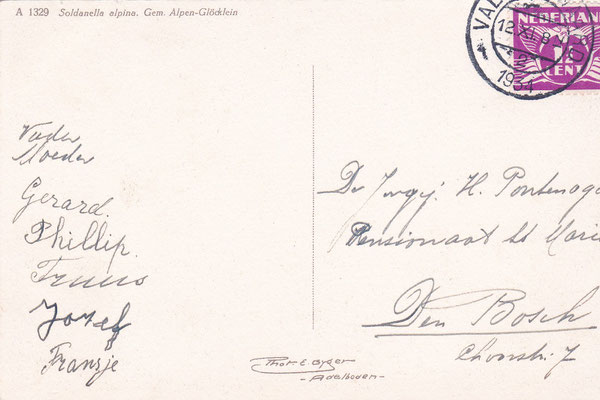 A 1329 Soldanella alpina. Gem. Alpen-Glöcklein
VAL
12.XI 8
1934
NEDERLAN
1½
CENT
Vader
Moeder
Gerard.
Phillip.
Truus
Jozef
Fransje
De Jongej: H. Pontenage
Pensionaat St Marie
Den Bosch
Choorstr. 7
Phot E. Gyger
- Adelboden -